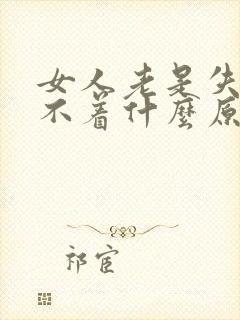 女人老是失
不着什麼原
祁宦